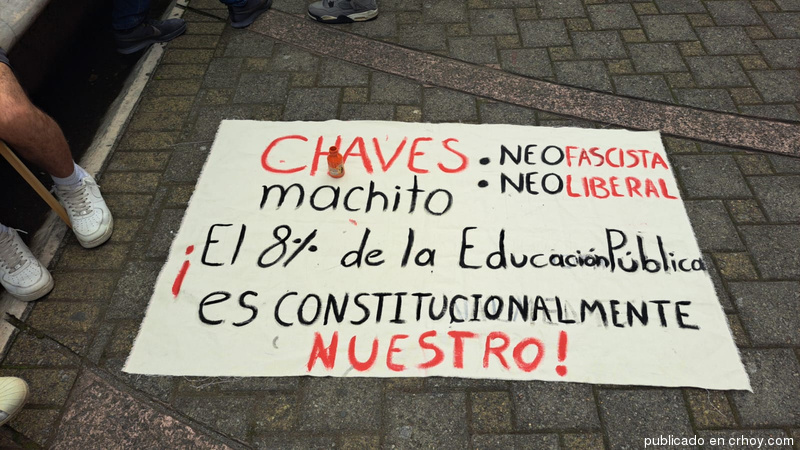 CHAVES
• NEOFASCISTA
machito
• NEOLIBERAL
¡El 8% de la Educación Pública
es CONSTITUCIONALMENTE
NUESTRO!
publicado en crhoy.com